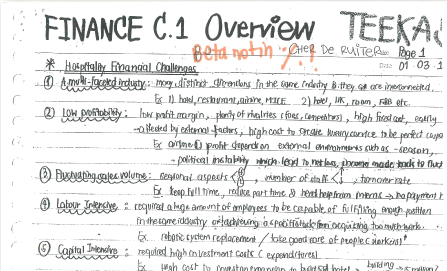 FINANCE C.1 Overview TEEKA
Beta not in
CHER DE RUITER Page 1
Date 01.03.1
* Hospitality Financial Challenges
① A multi-faceted industry: many distinct dimensions in the same industry & they are interconnected,
Ex 1) hotel, restaurant, airline, MICE 2) hotel, HK, room, F&B etc.
② Low profitability: low profit margin, plenty of rivalries (foes, competitors), high fixed cost, easily
affected by external factors, high cost to create luxury service to be perfect
Ex airline's profit depend on external environments such as - season,
- political instability which lead to net loss, income made back to
③ Fluctuating sales volume: regional aspects number of staff turnover rate
Ex keep full time, reduce part time & hotel help from interns → no payment
④ Labour Intensive: required a huge amount of employees to be capable of fulfilling enough position
in the same industry or achieving a profit from acquiring too much work.
Ex robotic system replacement / take good care of people (workers)
⑤ Capital Intensive: required high investment costs (expenditures)
building
Ex high cost to construct